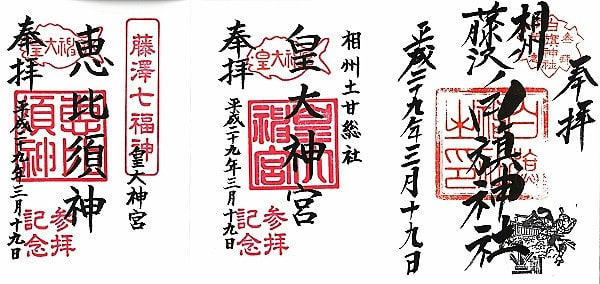 奉拝
相州
藤沢
白旗神社
平成二十九年三月十九日
相州土甘総社
皇大神宮
奉拝
平成二十九年三月十九日
参拝
記念
藤澤七福神
皇大神宮
恵比須神
奉拝
平成二十九年三月十九日
参拝
記念